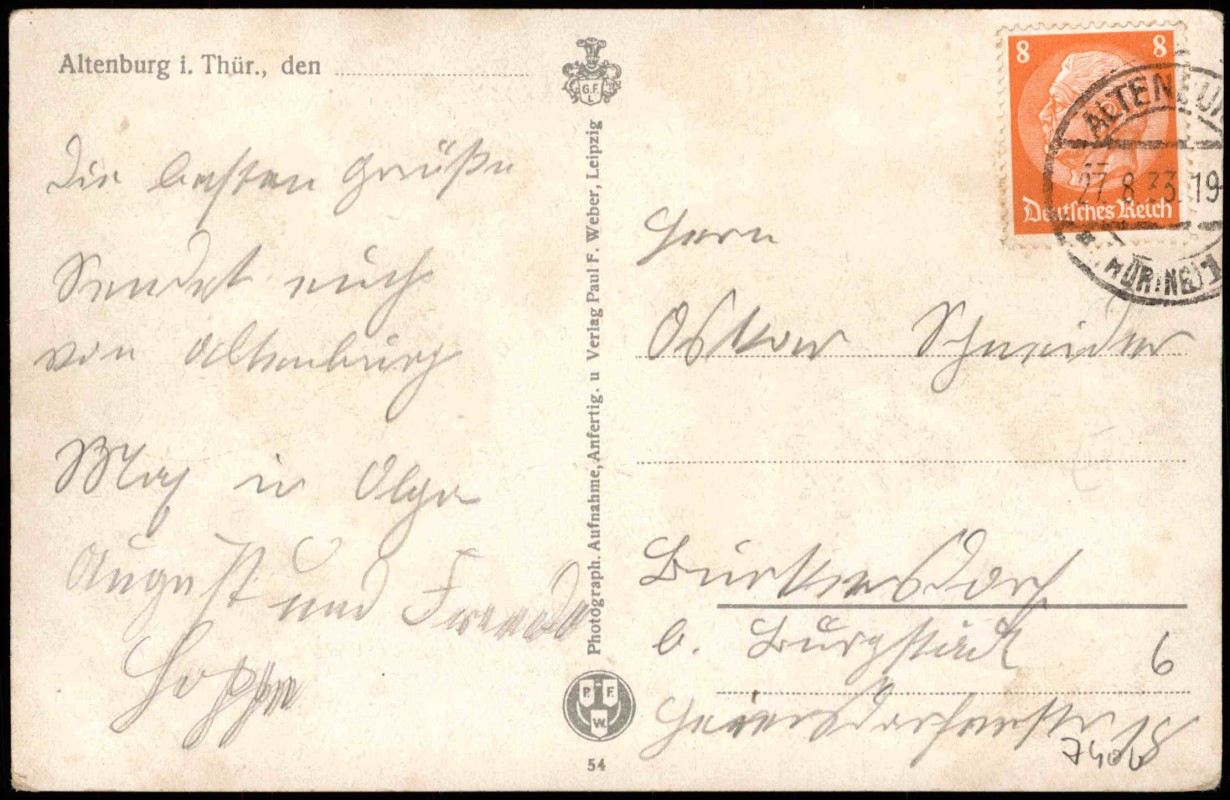 Altenburg i. Thür., den
Die besten Grüße
Sendet euch
von Altenburg
Max u Olga
August und Freunde
Hoppe
G.F.
L
Photograph. Aufnahme, Anfertig. u Verlag Paul F. Weber, Leipzig
P. F.
W
54
8 8
Deutsches Reich
ALTENBUR
27.8.33.19
(THÜRING)1
Herrn
Oskar Schneider
Burkersdorf
b. Burgstädt 6
Geiersdorferstr 18
7406